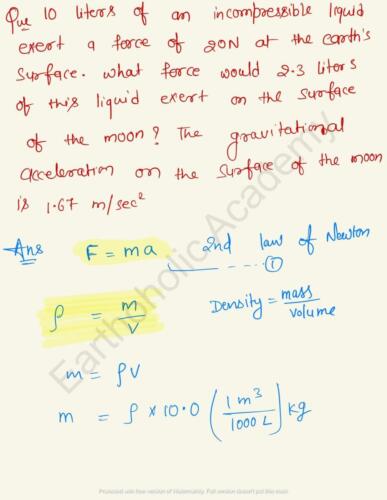 Que 10 liters of an incompressible liquid
exert a force of 20N at the earth's
surface. what force would 2.3 liters
of this liquid exert on the surface
of the moon? The gravitational
acceleration on the surface of the moon
is 1.67 m/sec²
Ans F = ma 2nd law of Newton
①
ρ = m/V Density = mass/volume
m = ρV
m = ρ × 10.0 (1 m³/1000 L) kg
Earthoholic Academy
Produced with free version of Notemability. Full version doesn't put this mark.